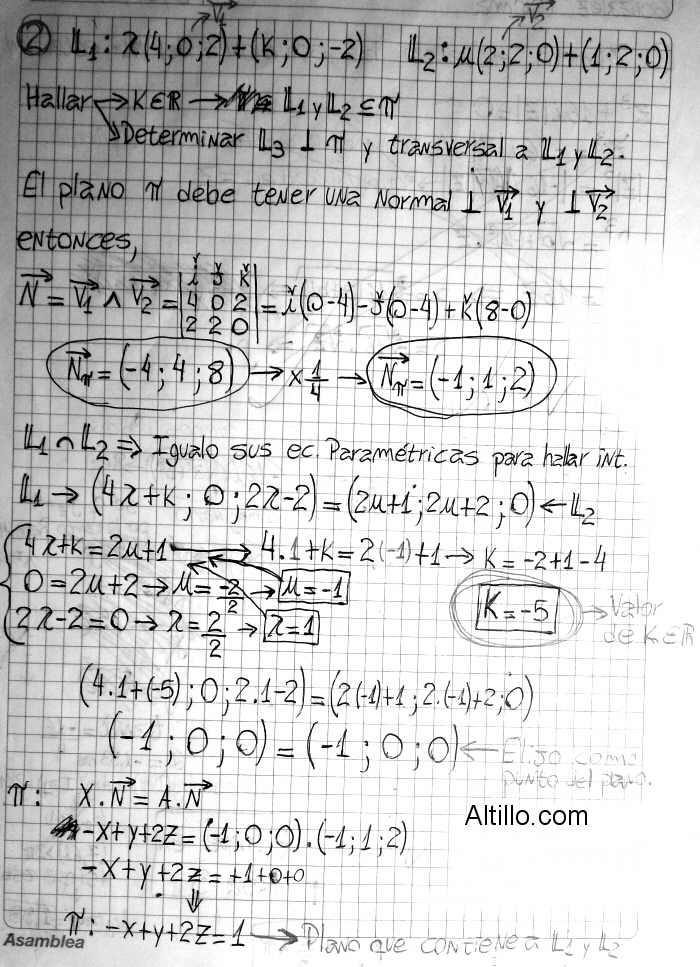 ② L₁: λ(4;0;2)+(K;0;-2) L₂: μ(2;2;0)+(1;2;0)
V₁ V₂
Hallar → K∈ℝ → L₁ y L₂ ⊆ π
Determinar L₃ ⊥ π y transversal a L₁ y L₂.
El plano π debe tener una Normal ⊥ V₁ y ⊥ V₂
entonces,
N = V₁ ∧ V₂ = |i j k; 4 0 2; 2 2 0| = i(0-4)-j(0-4)+k(8-0)
Nπ = (-4;4;8) → x 1/4 → Nπ = (-1;1;2)
L₁ ∩ L₂ ⇒ Igualo sus ec. Paramétricas para hallar int.
L₁ → (4λ+k; 0; 2λ-2) = (2μ+1; 2μ+2; 0) ← L₂
4λ+k = 2μ+1 → 4.1+k = 2(-1)+1 → K = -2+1-4
0 = 2μ+2 → μ = -2/2 → μ = -1
K = -5 → Valor de K∈ℝ
2λ-2 = 0 → λ = 2/2 → λ = 1
(4.1+(-5); 0; 2.1-2) = (2(-1)+1; 2.(-1)+2; 0)
(-1; 0; 0) = (-1; 0; 0) ← Elijo como
punto del plano.
π: X.N = A.N
Altillo.com
-x+y+2z = (-1;0;0).(-1;1;2)
-x+y+2z = +1+0+0
⇓
π: -x+y+2z = 1 → Plano que contiene a L₁ y L₂
Asamblea